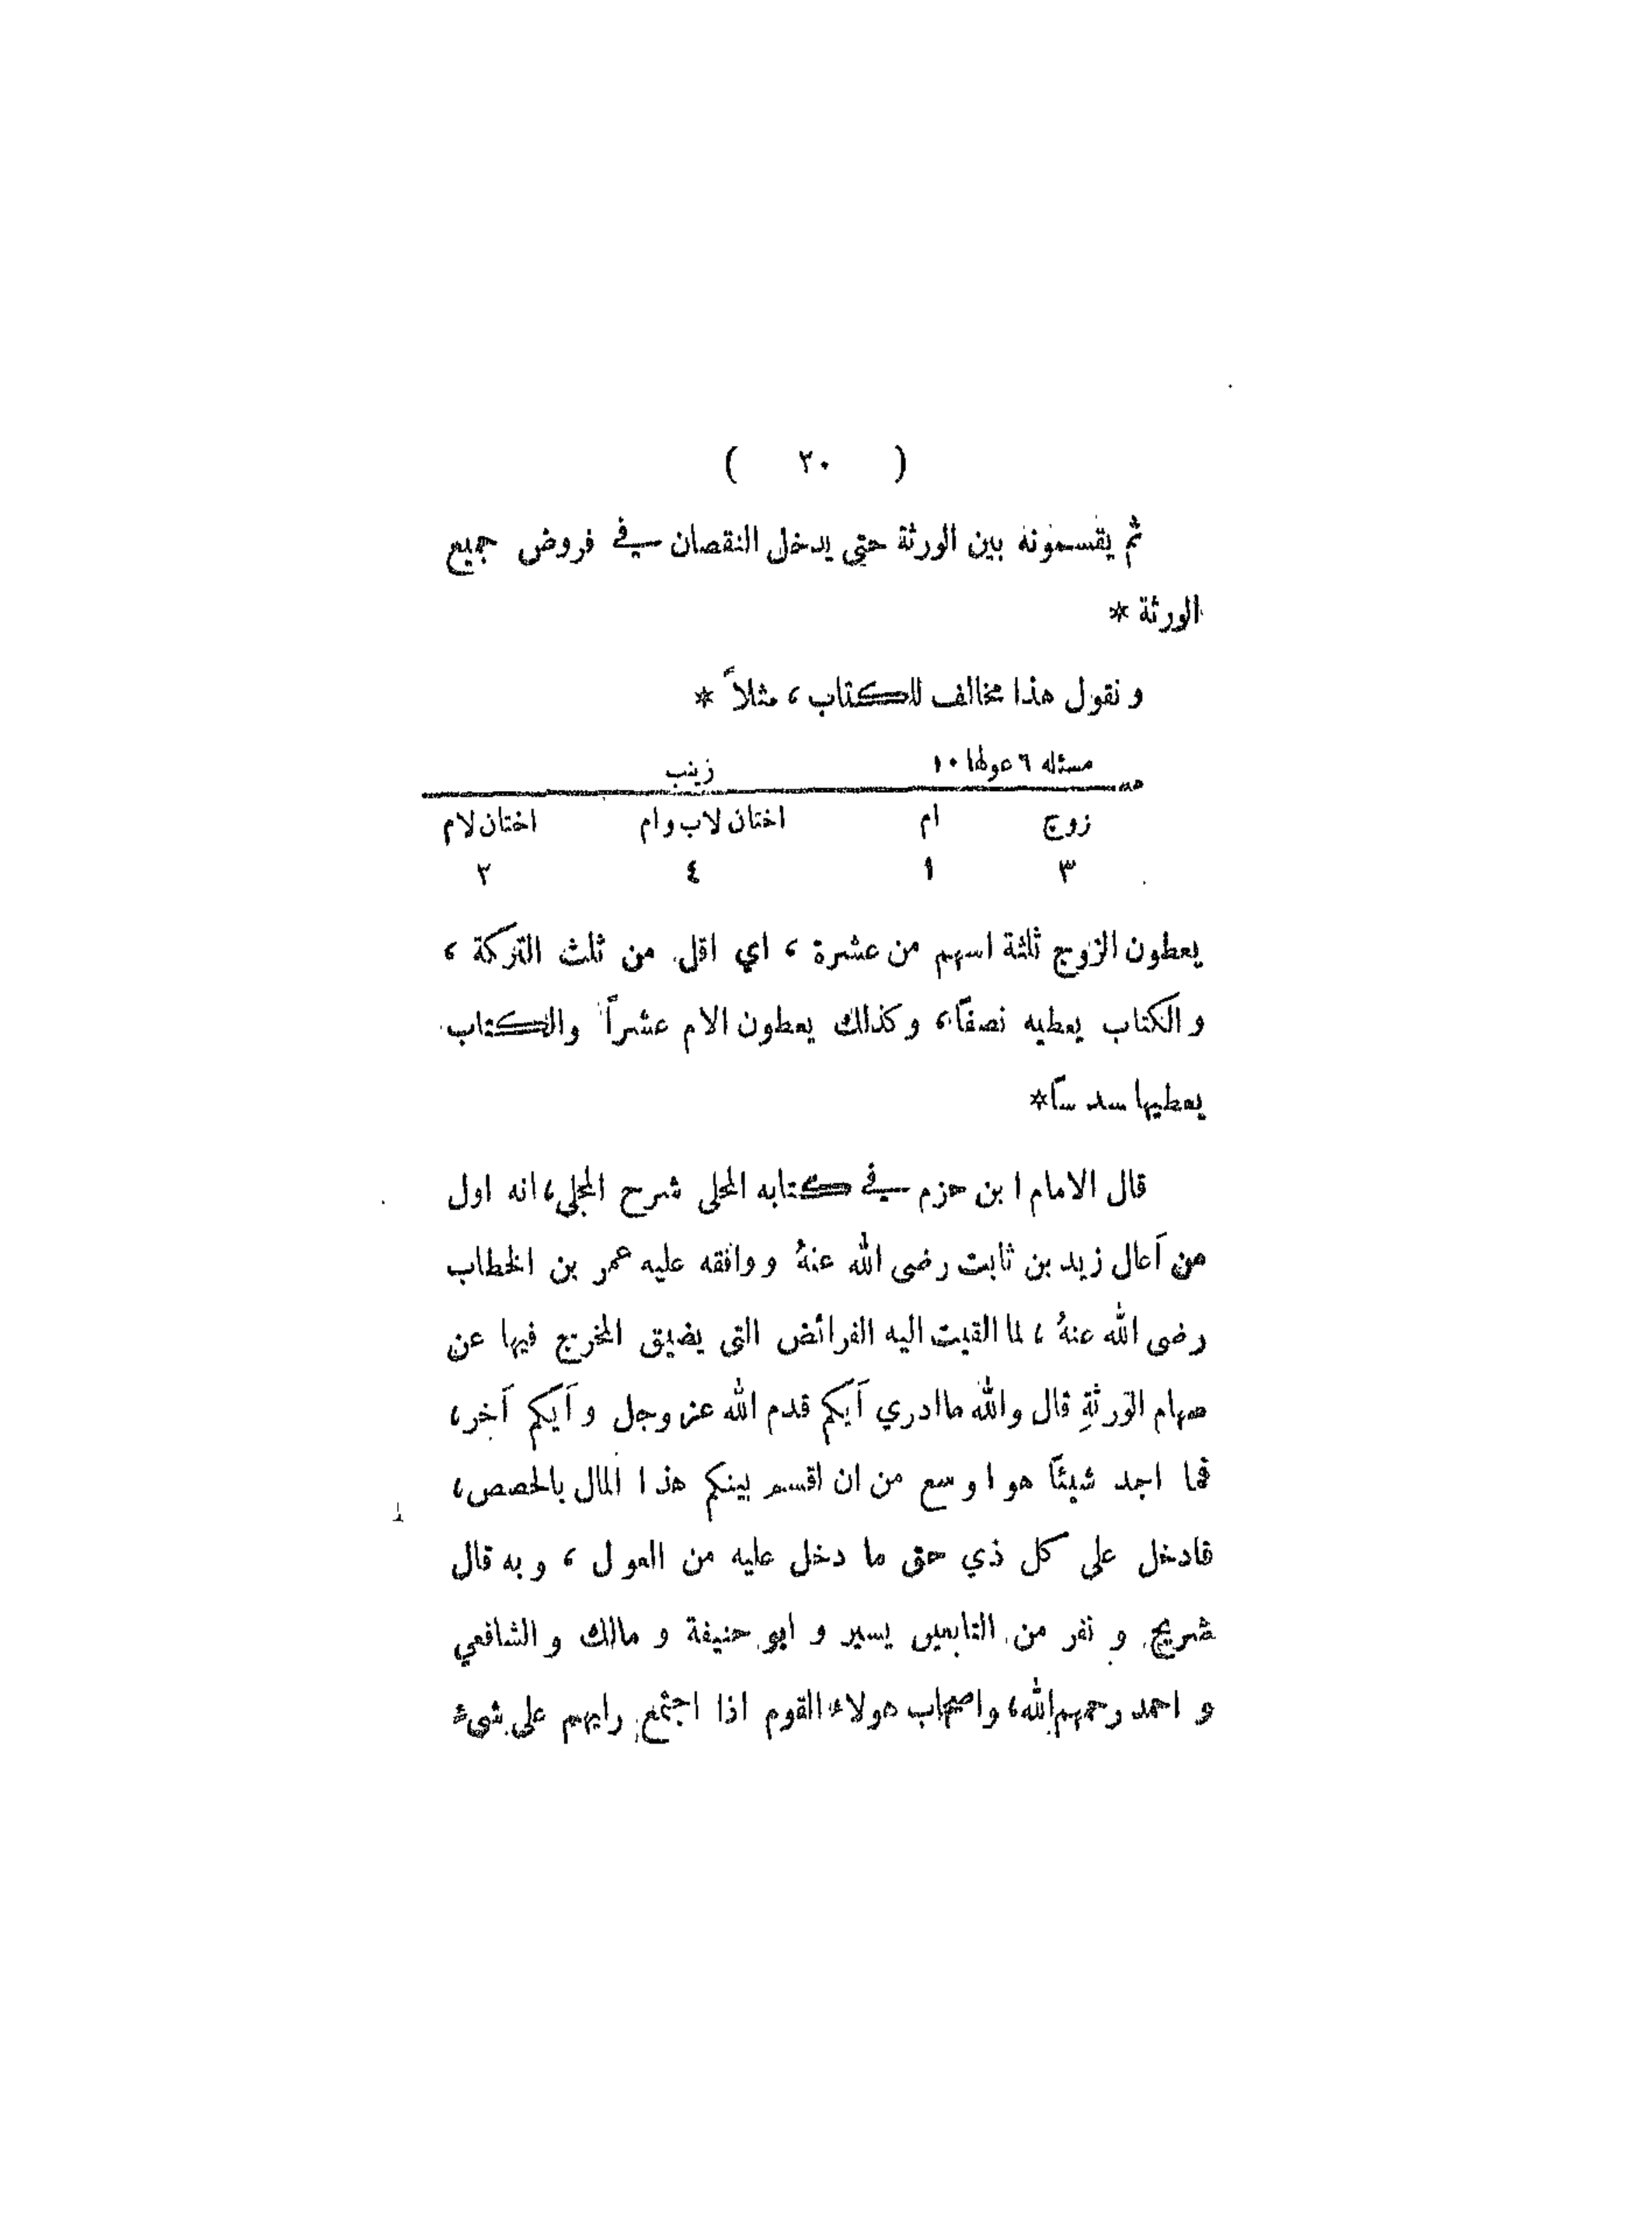 ( ٢٠ )
ثم يقسمونه بين الورثة حتى يدخل النقصان في فروض جميع
الورثة *
و نقول هذا مخالف للكتاب، مثلاً *
مسئله ٦ عولها ١٠ زينب
زوج ام اختان لاب وام اختان لام
٣ ١ ٤ ٢
يعطون الزوج ثلثة اسهم من عشرة، اي اقل من ثلث التركة،
و الكتاب يعطيه نصفاً، وكذلك يعطون الام عشراً والكتاب
يعطيها سدساً*
قال الامام ابن حزم في كتابه المحلى شرح المجلى، انه اول
من اَعال زيد بن ثابت رضى الله عنهُ و وافقه عليه عمر بن الخطاب
رضى الله عنهُ، لما القيت اليه الفرائض التى يضيق المخرج فيها عن
سهام الورثةِ قال والله ماادري اَيكم قدم الله عز وجل و اَيكم اَخر،
فما اجد شيئاً هو اوسع من ان اقسم بينكم هذا المال بالحصص،
فادخل على كل ذي حق ما دخل عليه من العول، و به قال
شريح و نفر من التابعين يسير و ابو حنيفة و مالك و الشافعي
و احمد رحمهم الله، واصحاب هولاء القوم اذا اجتمع رايهم على شىء